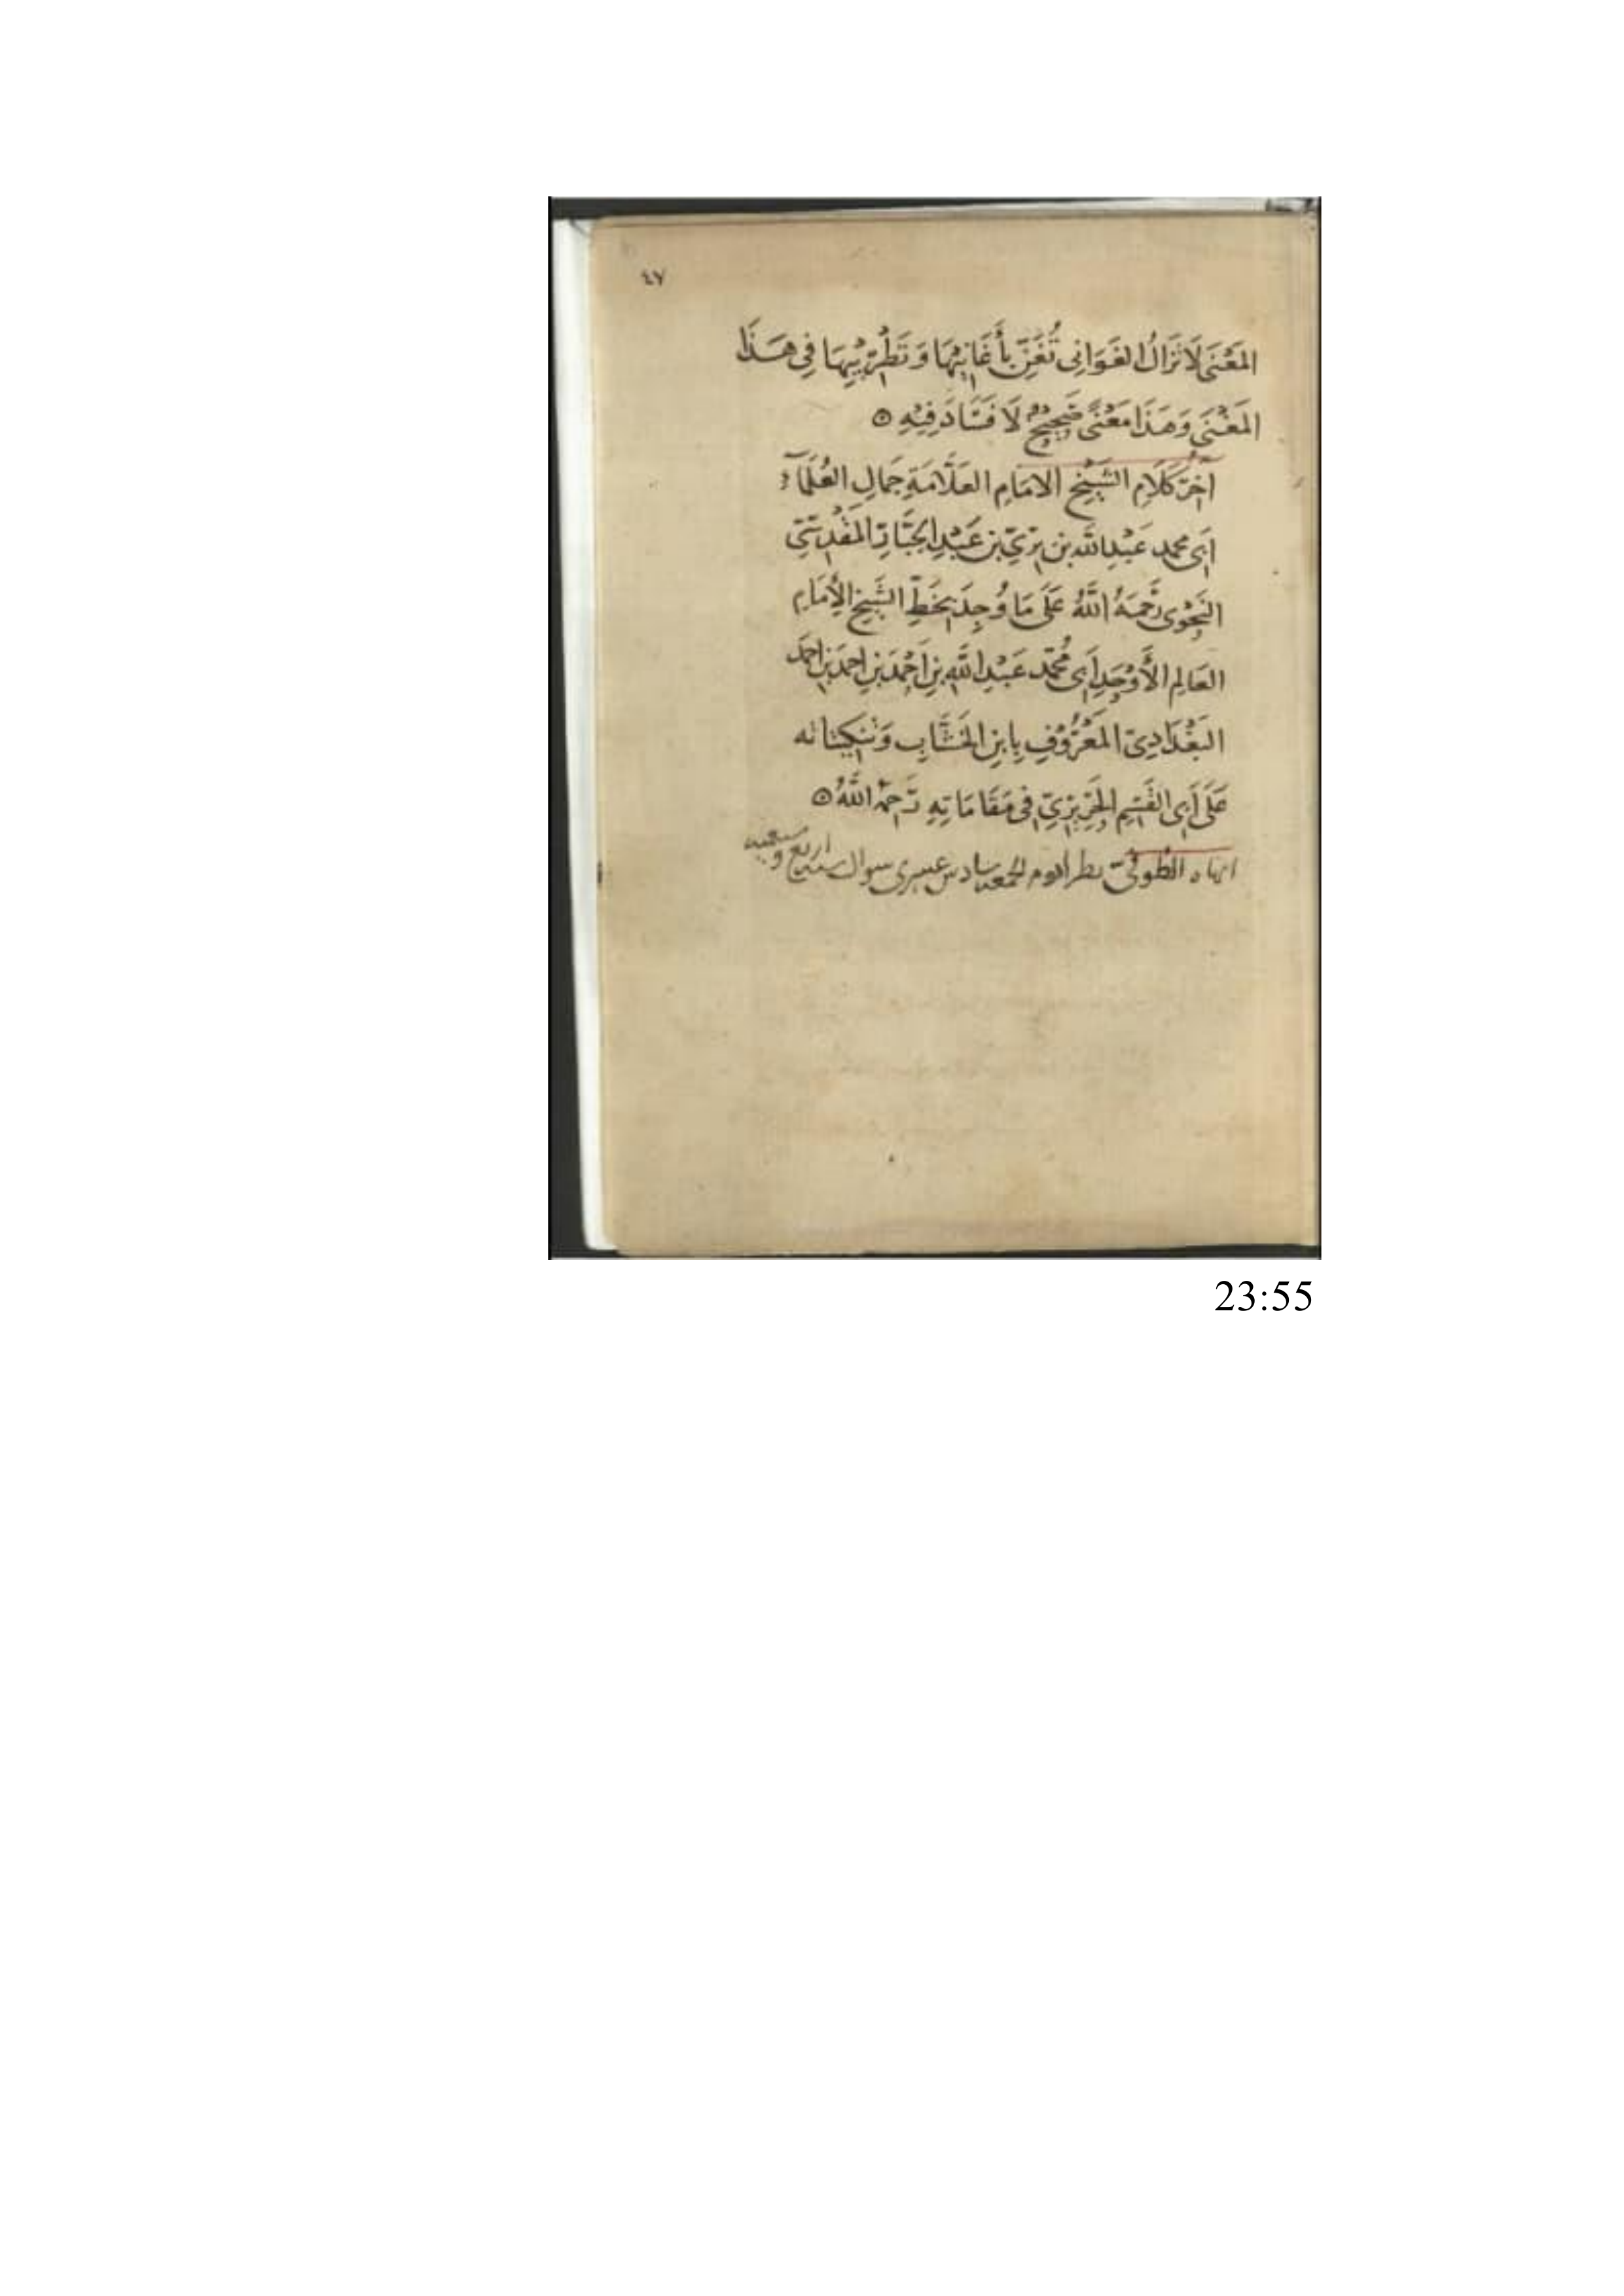 ٤٧
المَعْنَى لَا تَزَالُ الغَوَانِي تُغَنِّي بِأَغَانِيهَا وَتَطْرِيبِهَا فِي هَذَا
المَغْنَى وَهَذَا مَعْنًى صَحِيحٌ لَا فَسَادَ فِيْهِ ۞
آخِرُ كَلَامِ الشَّيْخِ الامَامِ العَلَّامَةِ جَمَالِ العُلَمَاءِ
أبي محمد عَبْدِ الله بن بَرِّيّ بن عَبْدِ الجَبَّارِ المَقْدِسِيّ
النَّحْوِي رَحِمَهُ اللَّهُ عَلَى مَا وُجِدَ بِخَطِّ الشَّيْخِ الإمَامِ
العَالِمِ الأَوْحَدِ أَبي مُحَمَّد عَبْدِ اللَّهِ بنِ أَحْمَدَ بنِ احمَدَ بن احمَد
البَغْدَادِيّ المَعْرُوْفِ بِابنِ الخَشَّابِ وَتَنْكِيتَاتِه
عَلَى أَبِي القَسِمِ الحَرِيْرِيّ فِي مَقَامَاتِهِ رَحِمَهُ اللَّهُ ۞
انهاه الطوفيّ الجمعه سادس عسرى سوال سنه اربع و
23:55